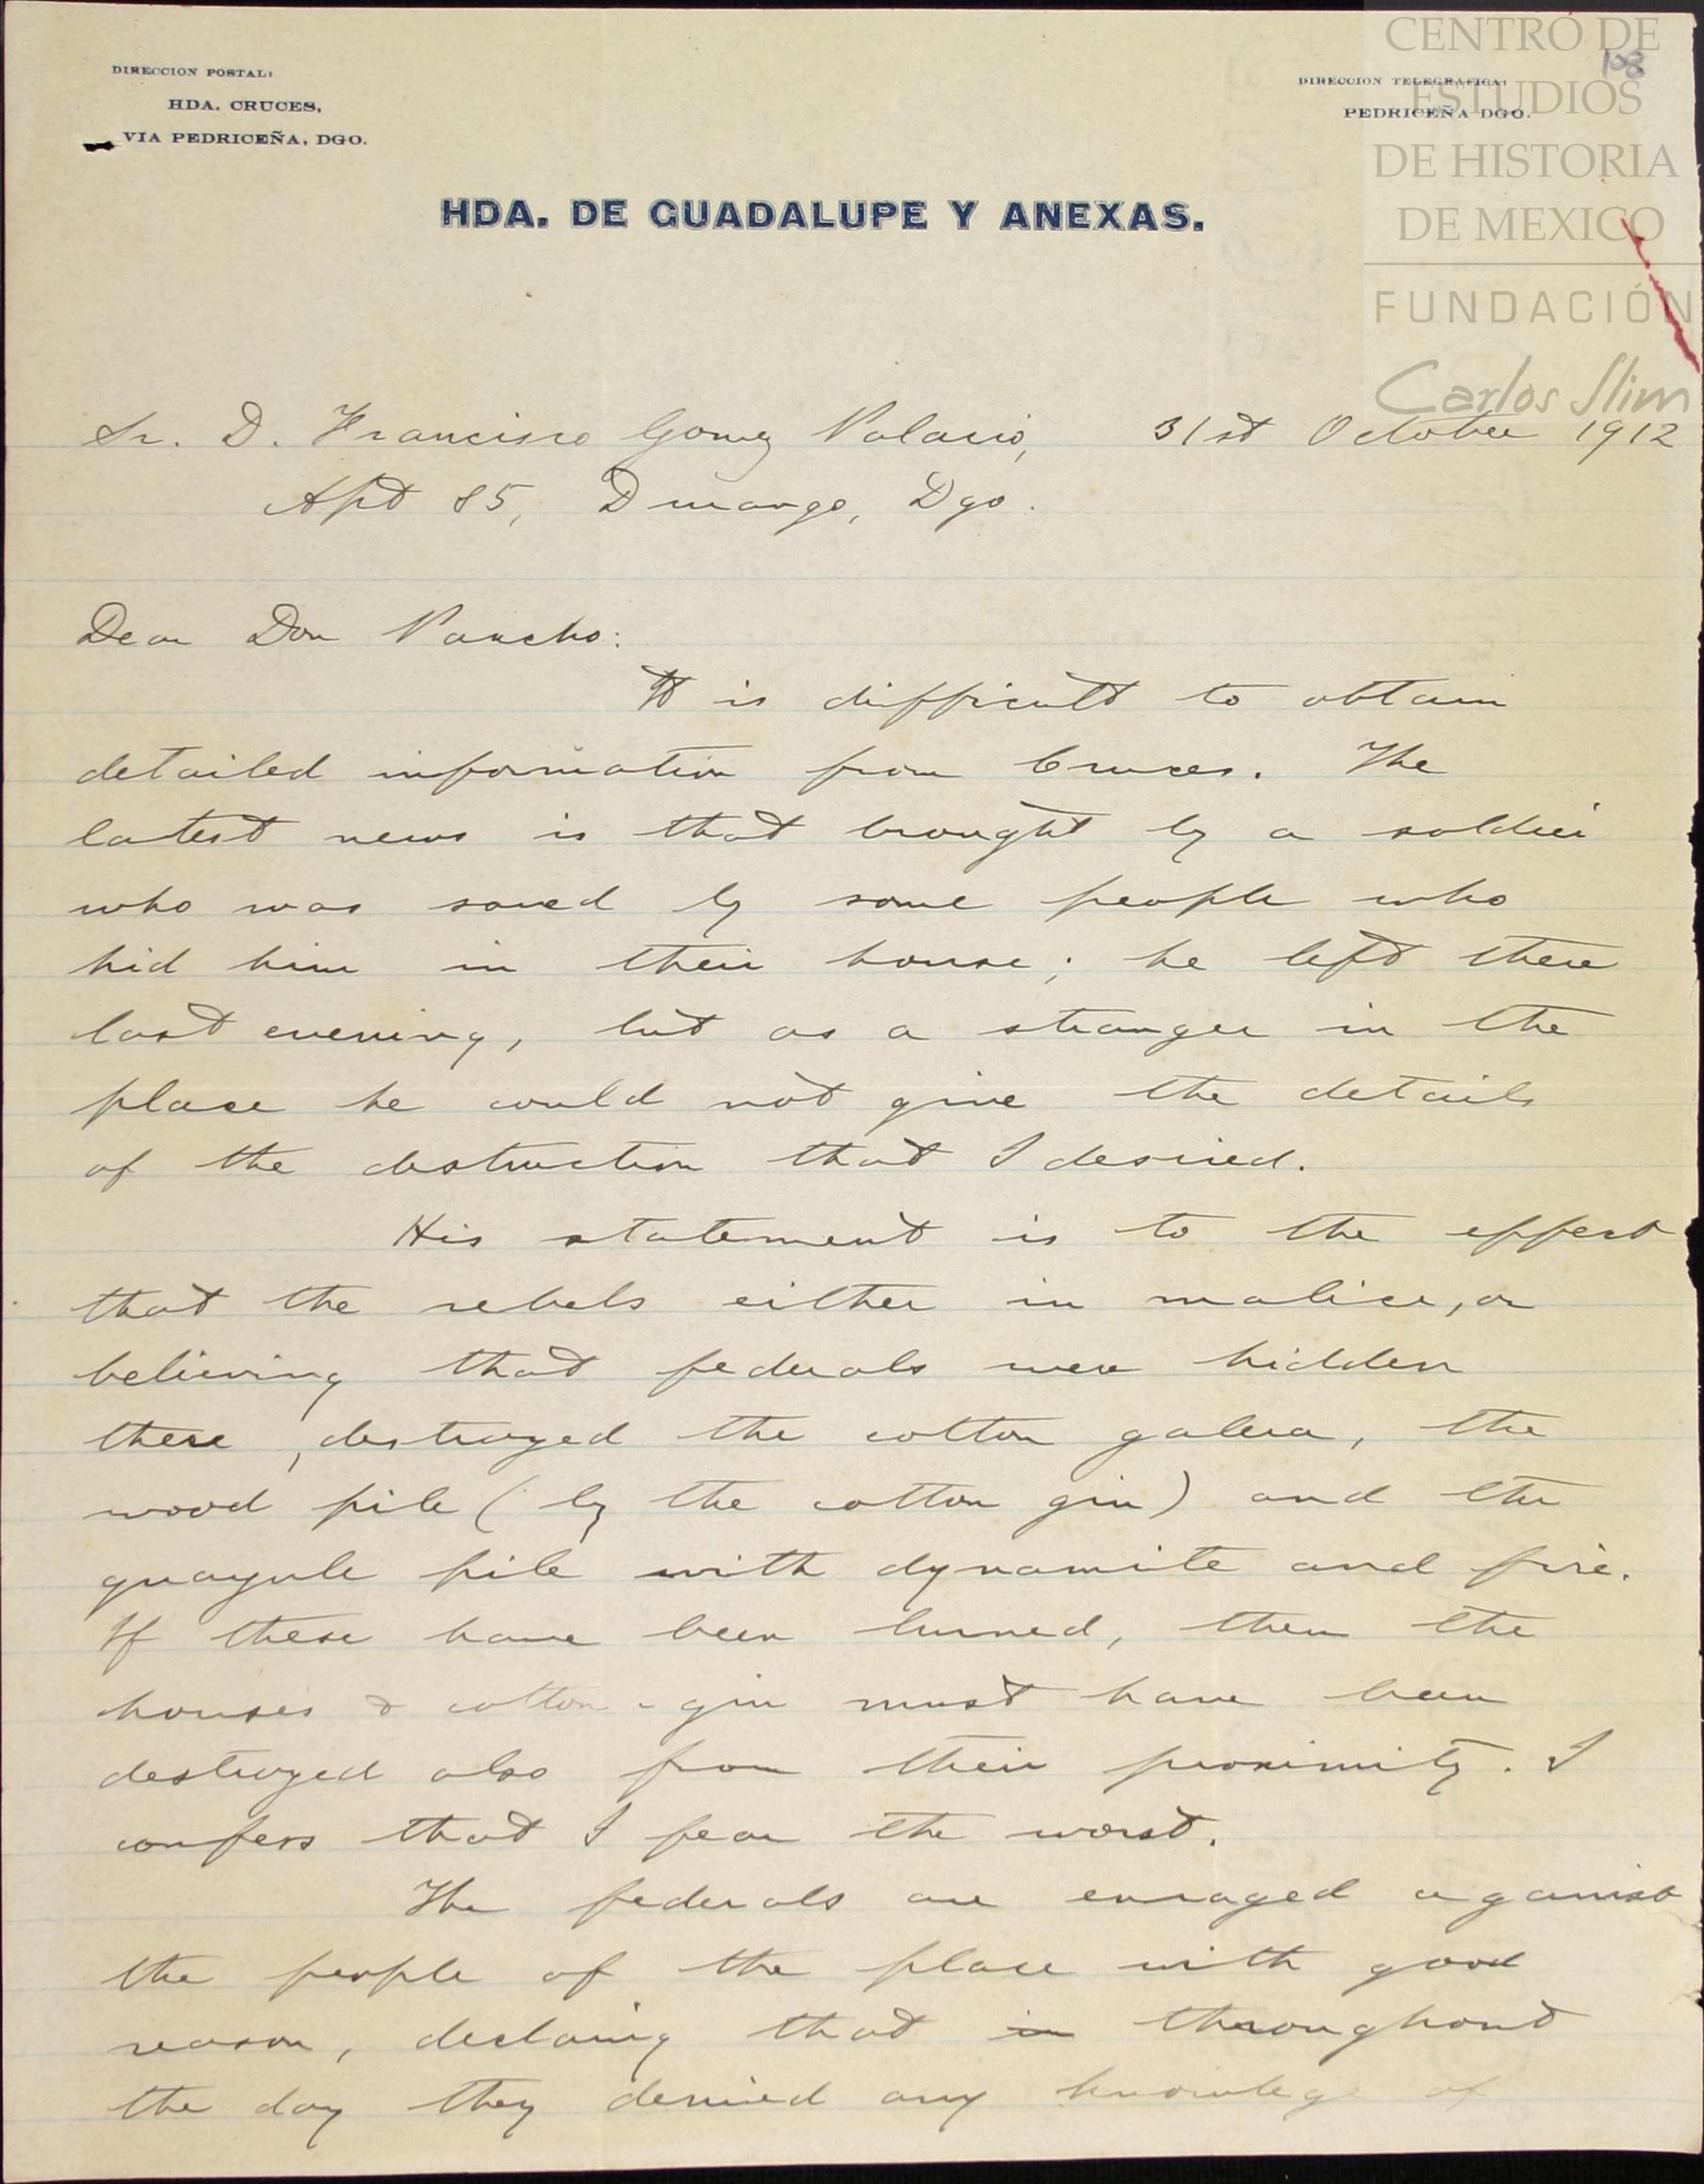 CENTRO DE
ESTUDIOS
DE HISTORIA
DE MEXICO
FUNDACIÓN
Carlos Slim
108
DIRECCION POSTAL:
HDA. CRUCES,
VIA PEDRICEÑA, DGO.
DIRECCION TELEGRAFICA:
PEDRICEÑA DGO.
HDA. DE GUADALUPE Y ANEXAS.
Sr. D. Francisco Gomez Palacio, 31st October 1912
Apt 85, Durango, Dgo.
Dear Don Pancho:
It is difficult to obtain
detailed information from Cruces. The
latest news is that brought by a soldier
who was saved by some people who
hid him in their house; he left there
last evening, but as a stranger in the
place he could not give the details
of the destruction that I desired.
His statement is to the effect
that the rebels either in malice, or
believing that federals were hidden
there, destroyed the cotton galera, the
wood pile (by the cotton gin) and the
guayule pile with dynamite and fire.
If these have been burned, then the
houses & cotton-gin must have been
destroyed also from their proximity. I
confess that I fear the worst.
The federals are enraged aganist
the people of the place with good
reason, declaring that in throughout
the day they denied any knowlege of